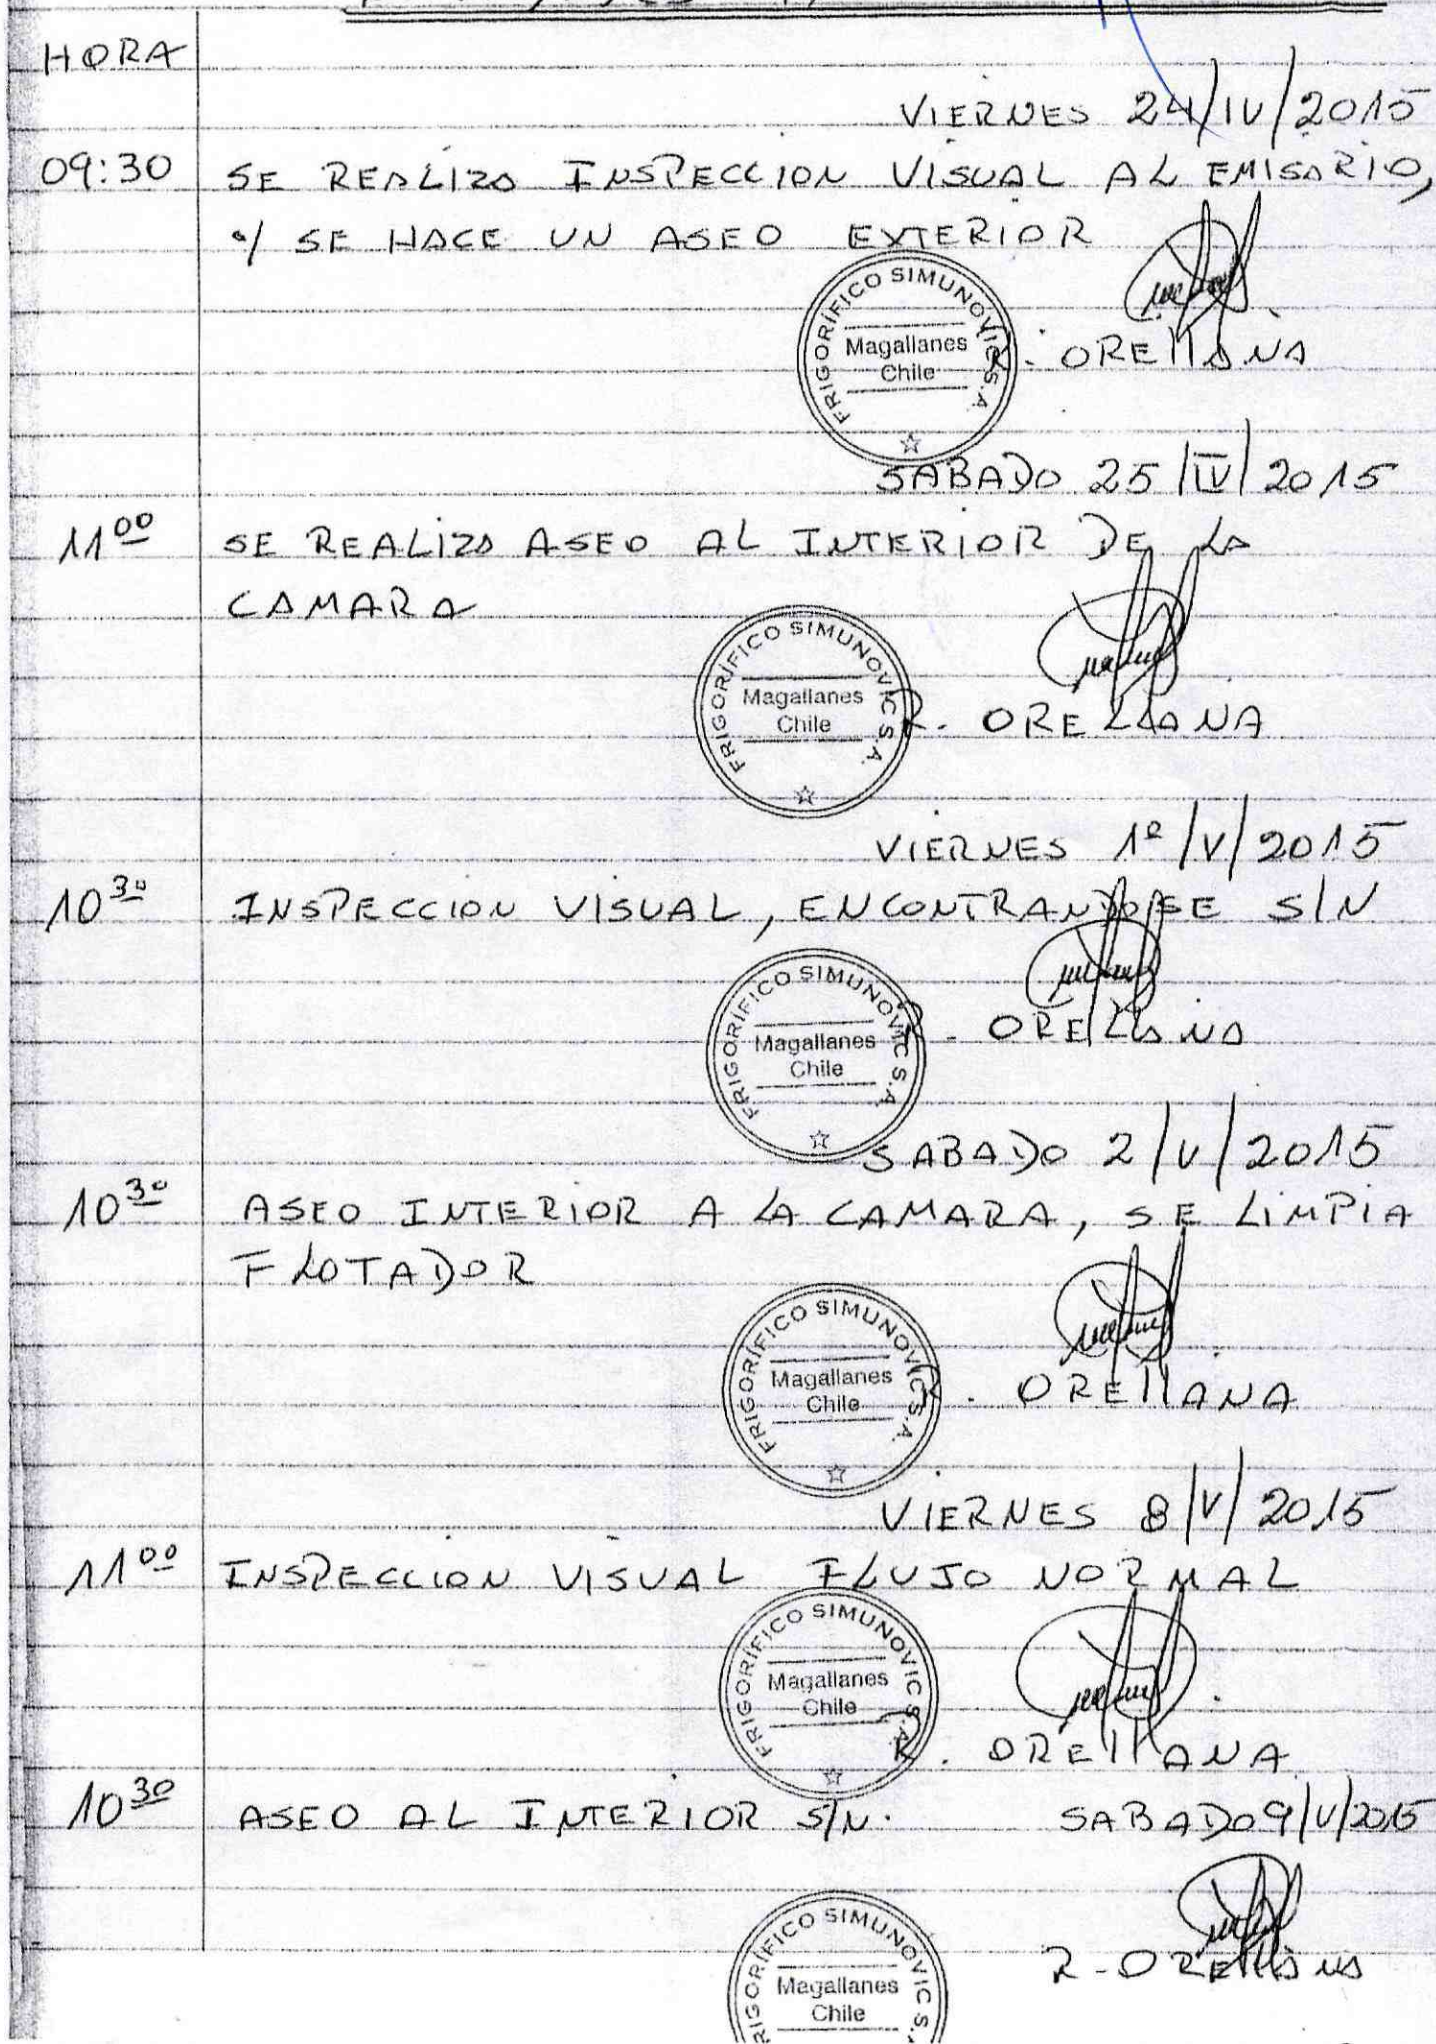 HORA
VIERNES 24/IV/2015
09:30 SE REALIZO INSPECCION VISUAL AL EMISARIO,
y SE HACE UN ASEO EXTERIOR
FRIGORÍFICO SIMUNOVIC S.A.
Magallanes
Chile
R. ORELLANA
SABADO 25/IV/2015
11 00 SE REALIZO ASEO AL INTERIOR DE LA
CAMARA
FRIGORÍFICO SIMUNOVIC S.A.
Magallanes
Chile
R. ORELLANA
VIERNES 1º/V/2015
10 30 INSPECCION VISUAL, ENCONTRANDOSE S/N
FRIGORÍFICO SIMUNOVIC S.A.
Magallanes
Chile
R. ORELLANA
SABADO 2/V/2015
10 30 ASEO INTERIOR A LA CAMARA, SE LIMPIA
FLOTADOR
FRIGORÍFICO SIMUNOVIC S.A.
Magallanes
Chile
R. ORELLANA
VIERNES 8/V/2015
11 00 INSPECCION VISUAL FLUJO NORMAL
FRIGORÍFICO SIMUNOVIC S.A.
Magallanes
Chile
R. ORELLANA
10 30 ASEO AL INTERIOR S/N. SABADO 9/V/2015
FRIGORÍFICO SIMUNOVIC S.A.
Magallanes
Chile
R-ORELLANA